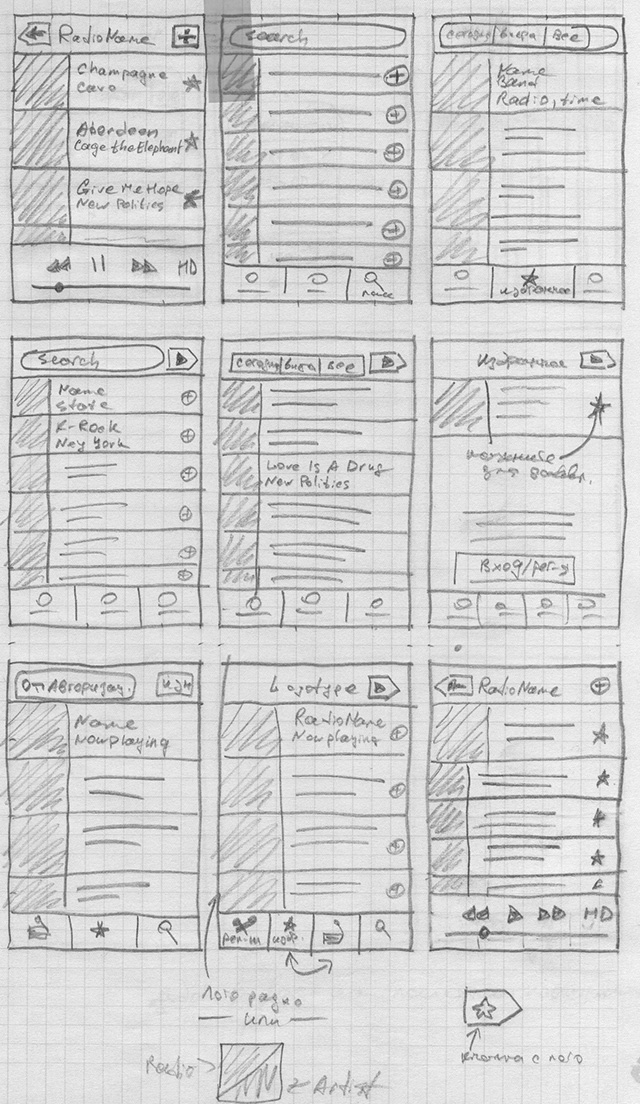 RadioName
Champagne
Cavo
Aberdeen
Cage the Elephant
Give Me Hope
New Politics
HD
Search
поиск
сегодня/вчера/все
Name
Band
Radio, time
избранное
Search
Name
State
K-Rock
New York
сегодня/вчера/все
Love Is A Drug
New Politics
Избранное
нажмите
для добавл.
Вход/рег-я
Name
Nowplaying
Logotype
RadioName
Nowplaying
рег-ии
избр.
RadioName
HD
лого радио
или
Radio
Artist
кнопка с лого